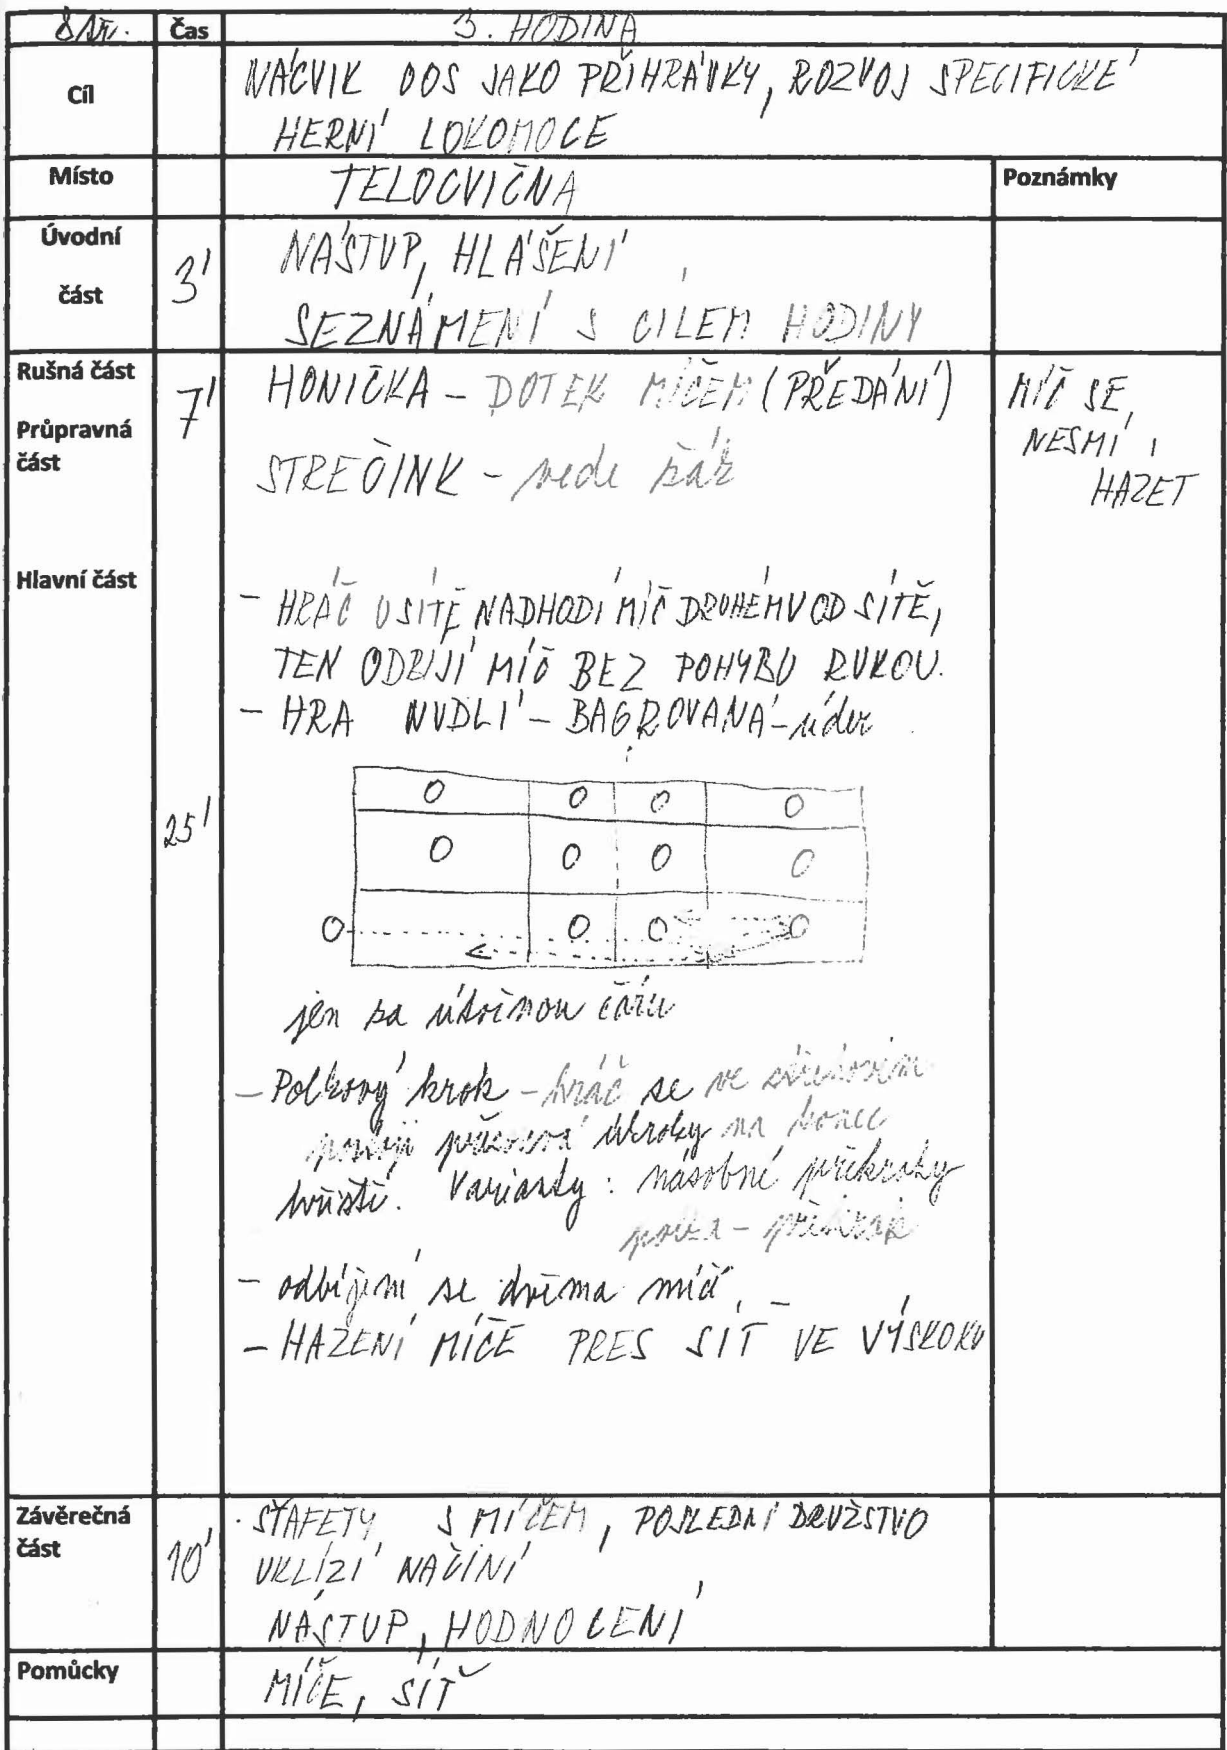 8. tř. Čas 3. HODINA
Cíl NÁCVIK OOS JAKO PŘIHRÁVKY, ROZVOJ SPECIFICKÉ
HERNÍ LOKOMOCE
Místo TĚLOCVIČNA Poznámky
Úvodní část 3' NÁSTUP, HLÁŠENÍ
SEZNÁMENÍ S CÍLEM HODINY
Rušná část 7' HONIČKA - DOTEK MÍČEM (PŘEDÁNÍ) MÍČ SE
Průpravná část STREČINK - vede žák NESMÍ
HÁZET
Hlavní část 25'
- HRÁČ U SÍTĚ NADHODÍ MÍČ DRUHÉMU OD SÍTĚ,
TEN ODBÍJÍ MÍČ BEZ POHYBU RUKOU.
- HRA NUDLÍ - BAGROVANÁ - úder
O O O O
O O O O
O O O O
jen za útočnou čáru
- Polkový krok - hráč se ve střehovém
úkroky na konec
hřiště. Varianty: násobné překroky
- odbíjení se dvěma míči
- HÁZENÍ MÍČE PŘES SÍŤ VE VÝSKOKU
Závěrečná část 10' ŠTAFETY S MÍČEM, POSLEDNÍ DRUŽSTVO
UKLÍZÍ NÁČINÍ
NÁSTUP, HODNOCENÍ
Pomůcky MÍČE, SÍŤ